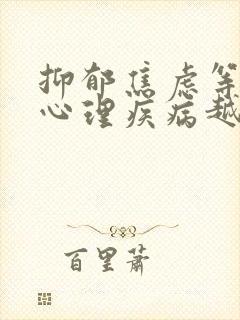 抑郁焦虑等
心理疾病越
百里萧